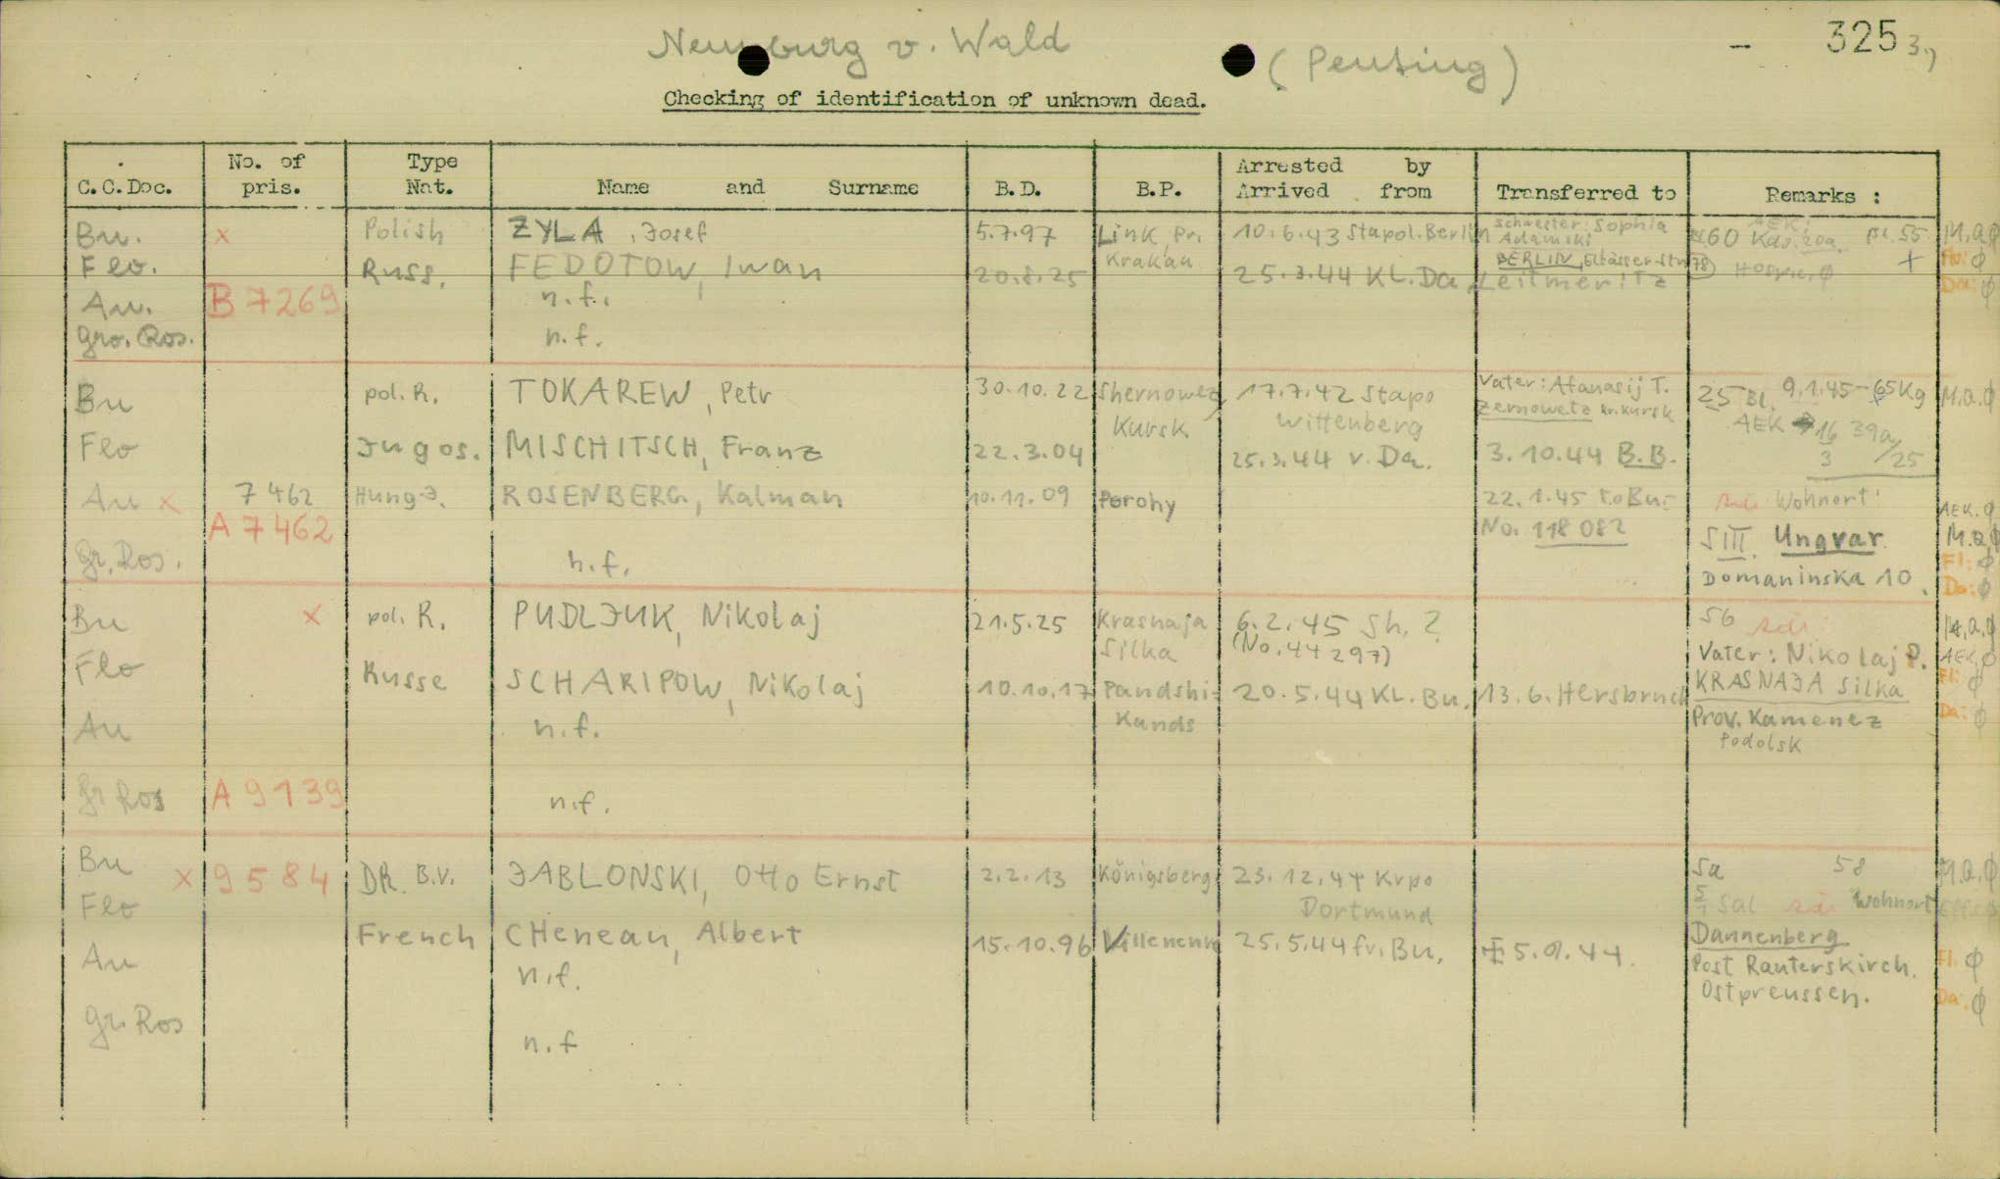 Neunburg v. Wald (Penting) - 325 3,)
Checking of identification of unknown dead.
C.C.Doc. No. of pris. Type Nat. Name and Surname B.D. B.P. Arrested by Arrived from Transferred to Remarks :
Bu. x Polish ZYLA, Josef 5.7.97 Link, pr. Krakau 10.6.43 Stapol. Berlin Schwester: Sophia Adamski BERLIN, Elsässer-Str. 78 AEK: 60 Bl. 55 M.a.ø
Flo. Russ. FEDOTOW, Iwan 20.8.25 25.3.44 KL. Da. Leitmeritz +
Au. B 7269 n.f. Da: ø
Gro. Ros. n.f.
Bu pol. R. TOKAREW, Petr 30.10.22 Shernowez, Kursk 17.7.42 Stapo Wittenberg Vater: Afanasij T. Zernowetz kr. Kursk 25 Bl. 9.1.45 - 65 Kg M.a.ø
AEK → 16 39a
3 /25
Flo Jugos. MISCHITSCH, Franz 22.3.04 25.3.44 v. Da. 3.10.44 B.B.
Au x 7462 Hung-J. ROSENBERG, Kalman 10.11.09 Porohy 22.1.45 to Bu- Wohnort: AEK. ø
A 7462 No. 118 082 SIII Ungvar M.a.ø
Fl: ø
Gr. Ros. n.f. Domaninska 10. Da: ø
Bu x pol. R. PUDLJUK, Nikolaj 21.5.25 Krasnaja Silka 6.2.45 Sh. ? (No. 44297) 56 M.a.ø
Vater: Nikolaj P. AEK. ø
KRASNAJA Silka Fl: ø
Prov. Kamenez Podolsk Da: ø
Flo Russe SCHARIPOW, Nikolaj 10.10.17 Pandshi-Kands 20.5.44 KL. Bu. 13.6. Hersbruck
Au n.f.
Gr Ros A 9139 n.f.
Bu x 9584 DR. B.V. JABLONSKI, Otto Ernst 2.2.13 Königsberg 23.12.44 Krpo Dortmund Sa 58 M.a.ø
5/1 Sal Wohnort
Dannenberg
Post Rauterskirch. Fl. ø
Ostpreussen. Da: ø
Flo French CHeneau, Albert 15.10.96 25.5.44 fr. Bu. 5.9.44.
Au n.f.
Gr. Ros n.f